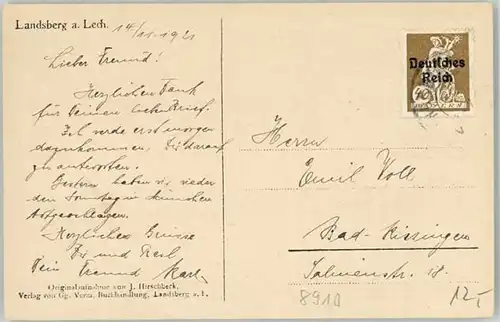 Landsberg a. Lech.
14/11. 1921
Lieber Freund!
Herzlichen Dank
für Deinen lieben Brief.
erst morgen
dazukommen, Dir darauf
zu antworten.
Gestern haben wir wieder
den Sonntag in München
totgeschlagen.
Herzliche Grüsse
Dir und Resl
Dein Freund Karl
Originalaufnahme von J. Hirschbeck.
Verlag von Gg. Verza, Buchhandlung, Landsberg a. L.
Deutsches
Reich
40
BAYERN
Herrn
Emil Voll
Bad-Kissingen
Salinenstr.
8910
12,-